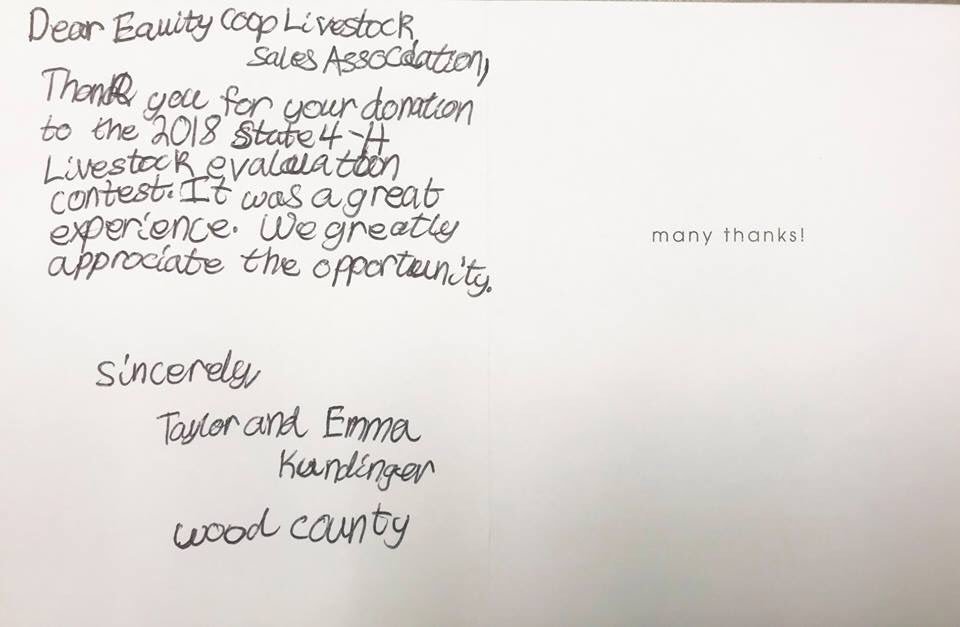 Dear Equity Coop Livestock
Sales Association,
Thank you for your donation
to the 2018 State 4-H
Livestock evaluation
contest. It was a great
experience. We greatly
approciate the opportunity.
sincerely,
Taylor and Emma
Kundinger
wood county
many thanks!